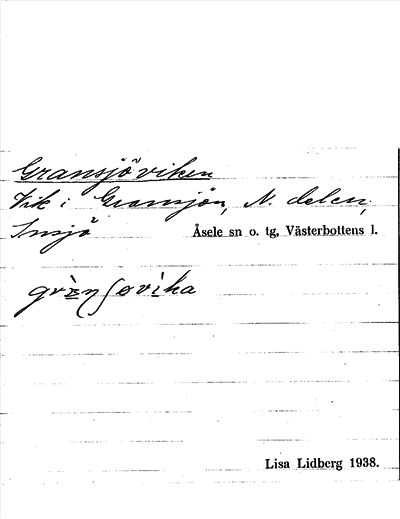 Gransjöviken
Vik i Gransjön, N. delen,
Insjö
Åsele sn o. tg, Västerbottens l.
Lisa Lidberg 1938.